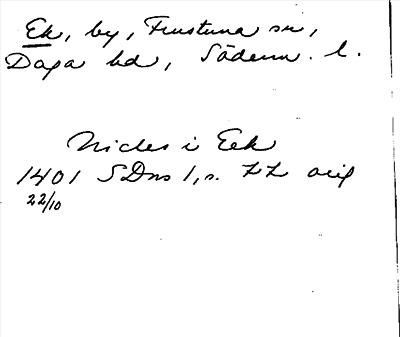 Ek, by, Frustuna sn,
Daga hd, Söderm. l.
Nicles i Eek
1401 SDns 1, s. 22 orig
22/10